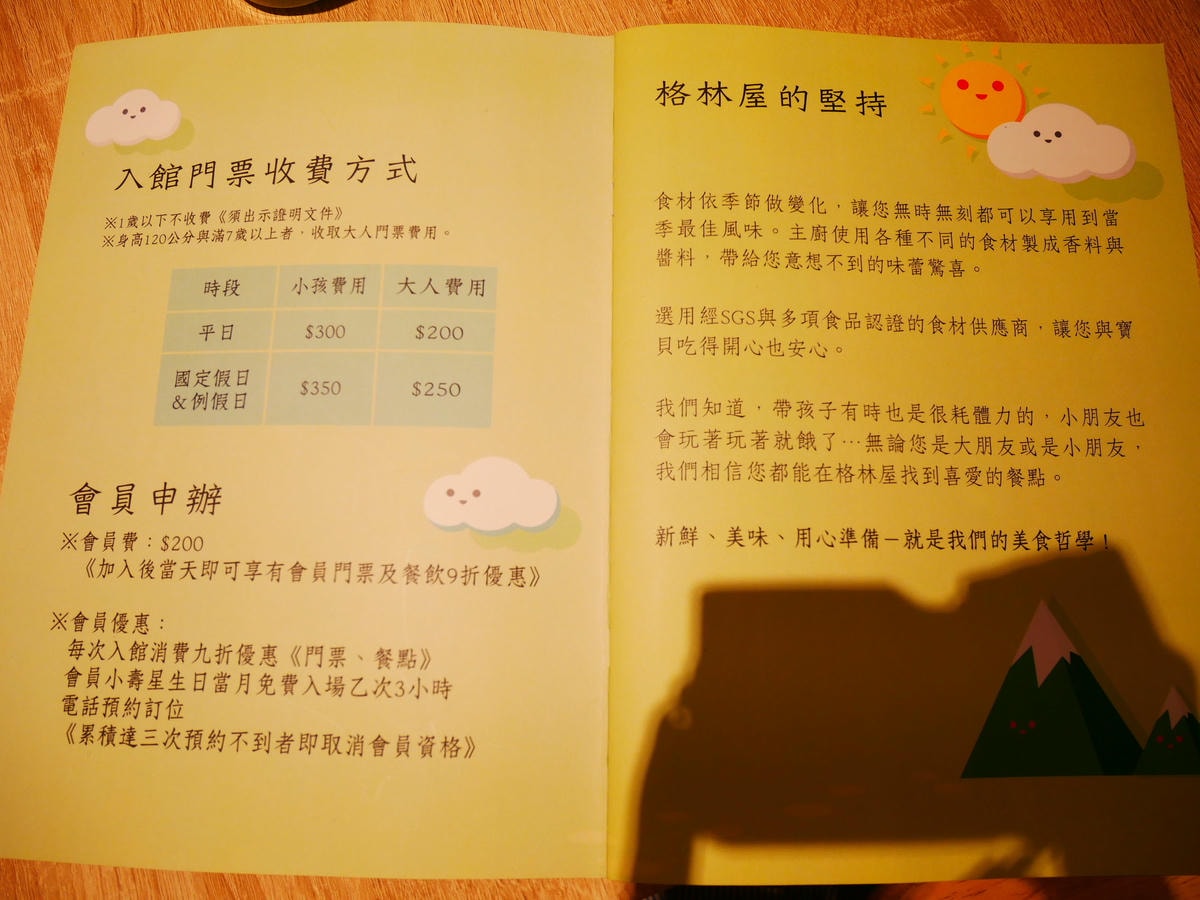 入館門票收費方式
※1歲以下不收費《須出示證明文件》
※身高120公分與滿7歲以上者，收取大人門票費用。
時段 小孩費用 大人費用
平日 $300 $200
國定假日
&例假日 $350 $250
會員申辦
※會員費：$200
《加入後當天即可享有會員門票及餐飲9折優惠》
※會員優惠：
每次入館消費九折優惠《門票、餐點》
會員小壽星生日當月免費入場乙次3小時
電話預約訂位
《累積達三次預約不到者即取消會員資格》
格林屋的堅持
食材依季節做變化，讓您無時無刻都可以享用到當
季最佳風味。主廚使用各種不同的食材製成香料與
醬料，帶給您意想不到的味蕾驚喜。
選用經SGS與多項食品認證的食材供應商，讓您與寶
貝吃得開心也安心。
我們知道，帶孩子有時也是很耗體力的，小朋友也
會玩著玩著就餓了…無論您是大朋友或是小朋友，
我們相信您都能在格林屋找到喜愛的餐點。
新鮮、美味、用心準備－就是我們的美食哲學！